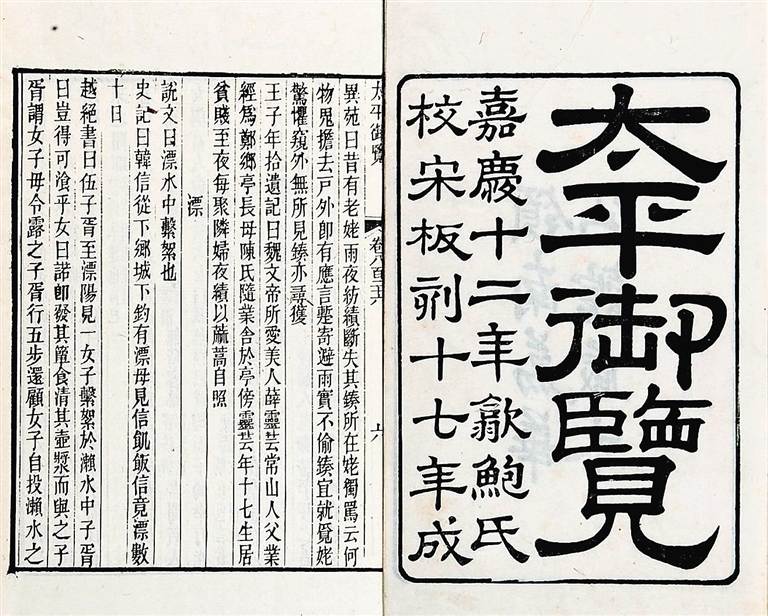 太平御覽
嘉慶十二年歙鮑氏
校宋板刷十七年成
太平御覽
卷八百二十六
六
異苑曰昔有老姥雨夜紡績斷失其䋲所在姥獨罵云何
物鬼擔去戶外即有應言蹔寄避雨實不偷䋲宜就覓姥
驚懼窺外無所見䋲亦尋獲
王子年拾遺記曰魏文帝所愛美人薛靈芸常山人父業
經爲鄼鄉亭長母陳氏隨業舍於亭傍靈芸年十七生居
貧賤至夜每聚隣婦夜績以蔴蒿自照
漂
說文曰漂水中繫絮也
史記曰韓信從下鄉城下釣有漂母見信飢飯信竟漂數
十日
越絕書曰伍子胥至溧陽見一女子繫絮於瀨水中子胥
曰豈得可飡乎女曰諾即發其簞食清其壺漿而與之子
胥謂女子毋令露之子胥行五步還顧女子自投瀨水之